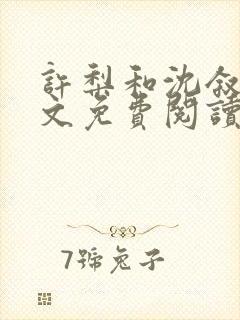 許梨和沈敘
文免費閱讀
7號兔子